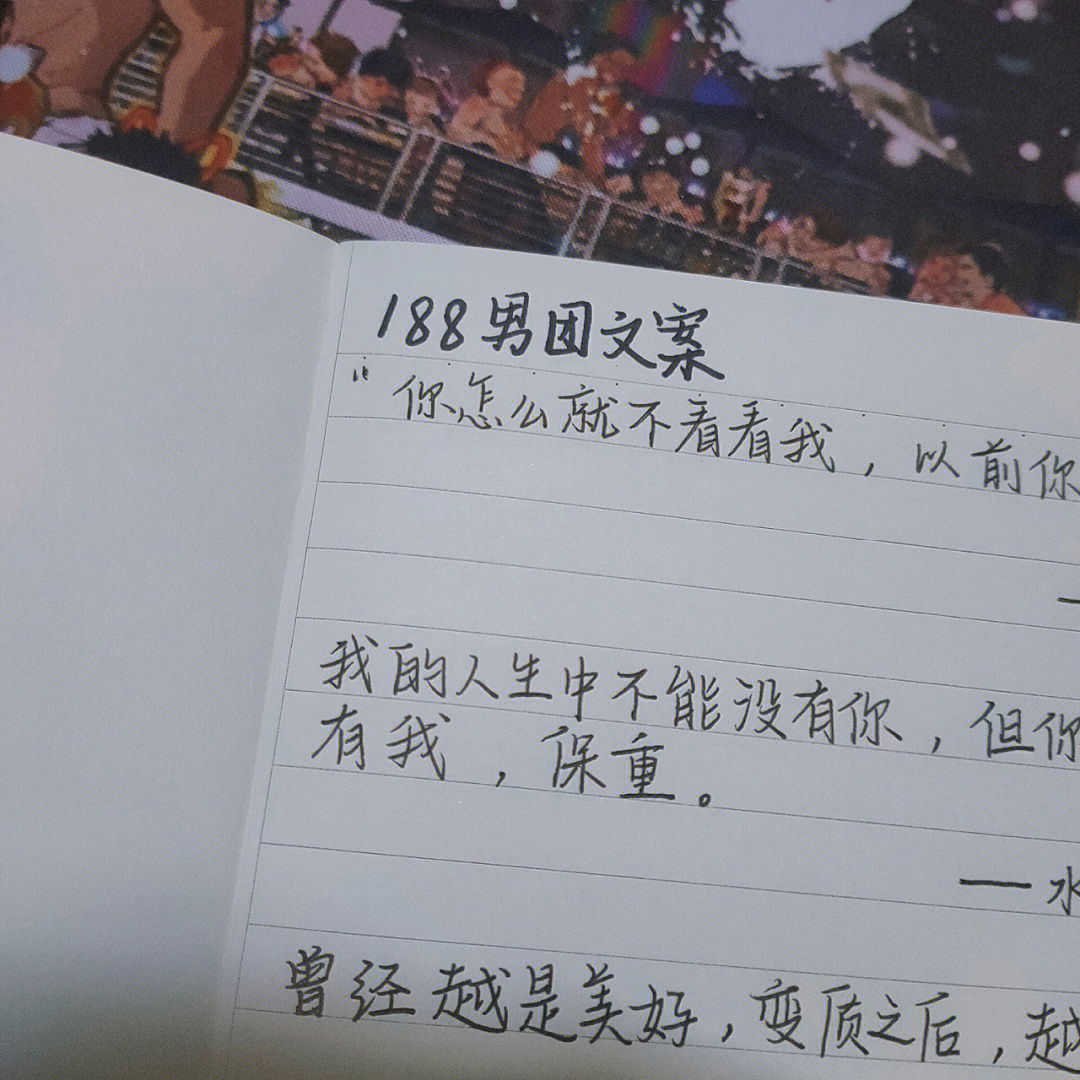 188男团文案
“你怎么就不看看我，以前你
—
我的人生中不能没有你，但你
有我，保重。
—水
曾经越是美好，变质之后，越